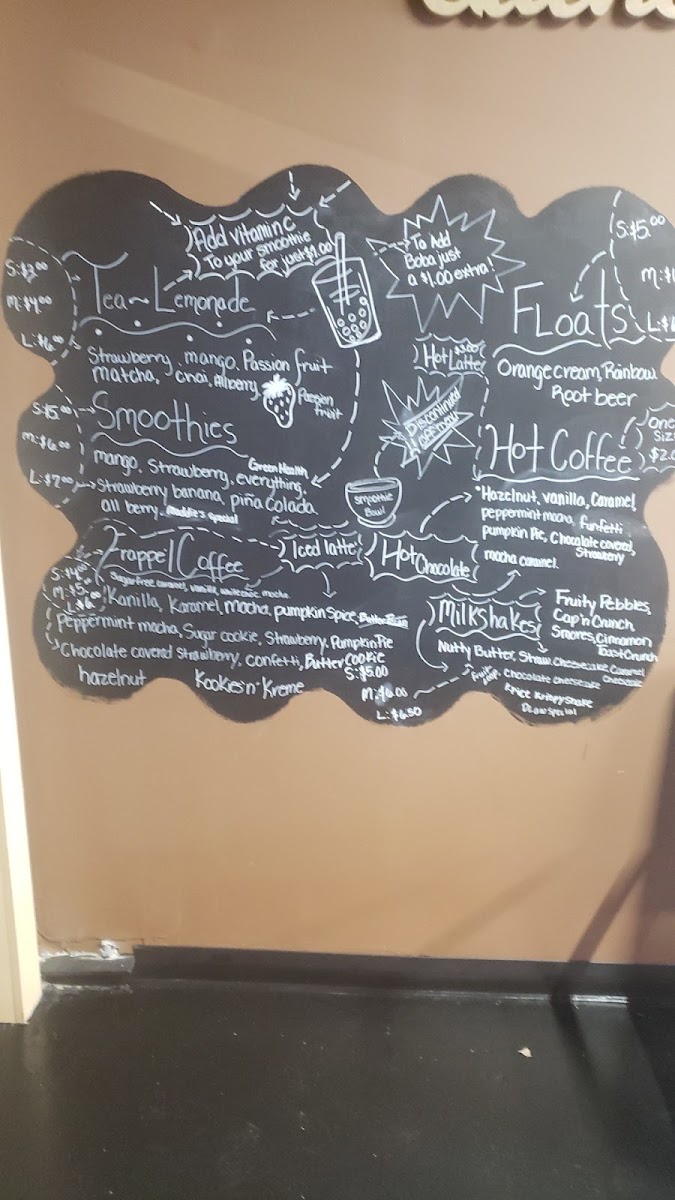 Add vitamin C
To your smoothie
for just $1.00
To Add
Boba just
a $1.00 extra!
S:$3.00
M:$4.00
L:$6.00
Tea~Lemonade
Strawberry, mango, Passion fruit
matcha, chai, Allberry,
Passion
fruit
S:$5.00
M:$6.00
L:$7.00
Smoothies
mango, Strawberry, everything,
Green Health
Strawberry banana, piña Colada.
all berry. Maddie's special
S:$5.00
M:$
L:$
Floats
Orange cream, Rainbow
Root beer
Hot $3.00
Latte
Discontinued
smoothie
Bowl
Hot Coffee
One
Size
$2.
Hazelnut, vanilla, Caramel
peppermint mocha, funfetti,
pumpkin Pie, Chocolate covered
Strawberry
mocha caramel.
Frappe/Coffee
Iced latte
Hot Chocolate
S:$4.00
M:$5.
L:$6.
Sugar free caramel, vanilla, white choc. mocha
Kanilla, Karamel, mocha, pumpkin spice,
Peppermint mocha, Sugar cookie, Strawberry, Pumpkin Pie
Chocolate covered strawberry, confetti, Butter Cookie
hazelnut Kookies'n'Kreme
Milkshakes
Fruity Pebbles,
Cap'n Crunch
Smores, Cinnamon
Toast Crunch
Nutty Butter, Straw. Cheesecake, Caramel
Cheesecake
Chocolate Cheesecake
Rice Krispy Shake
S:$5.00
M:$6.00
L:$6.50